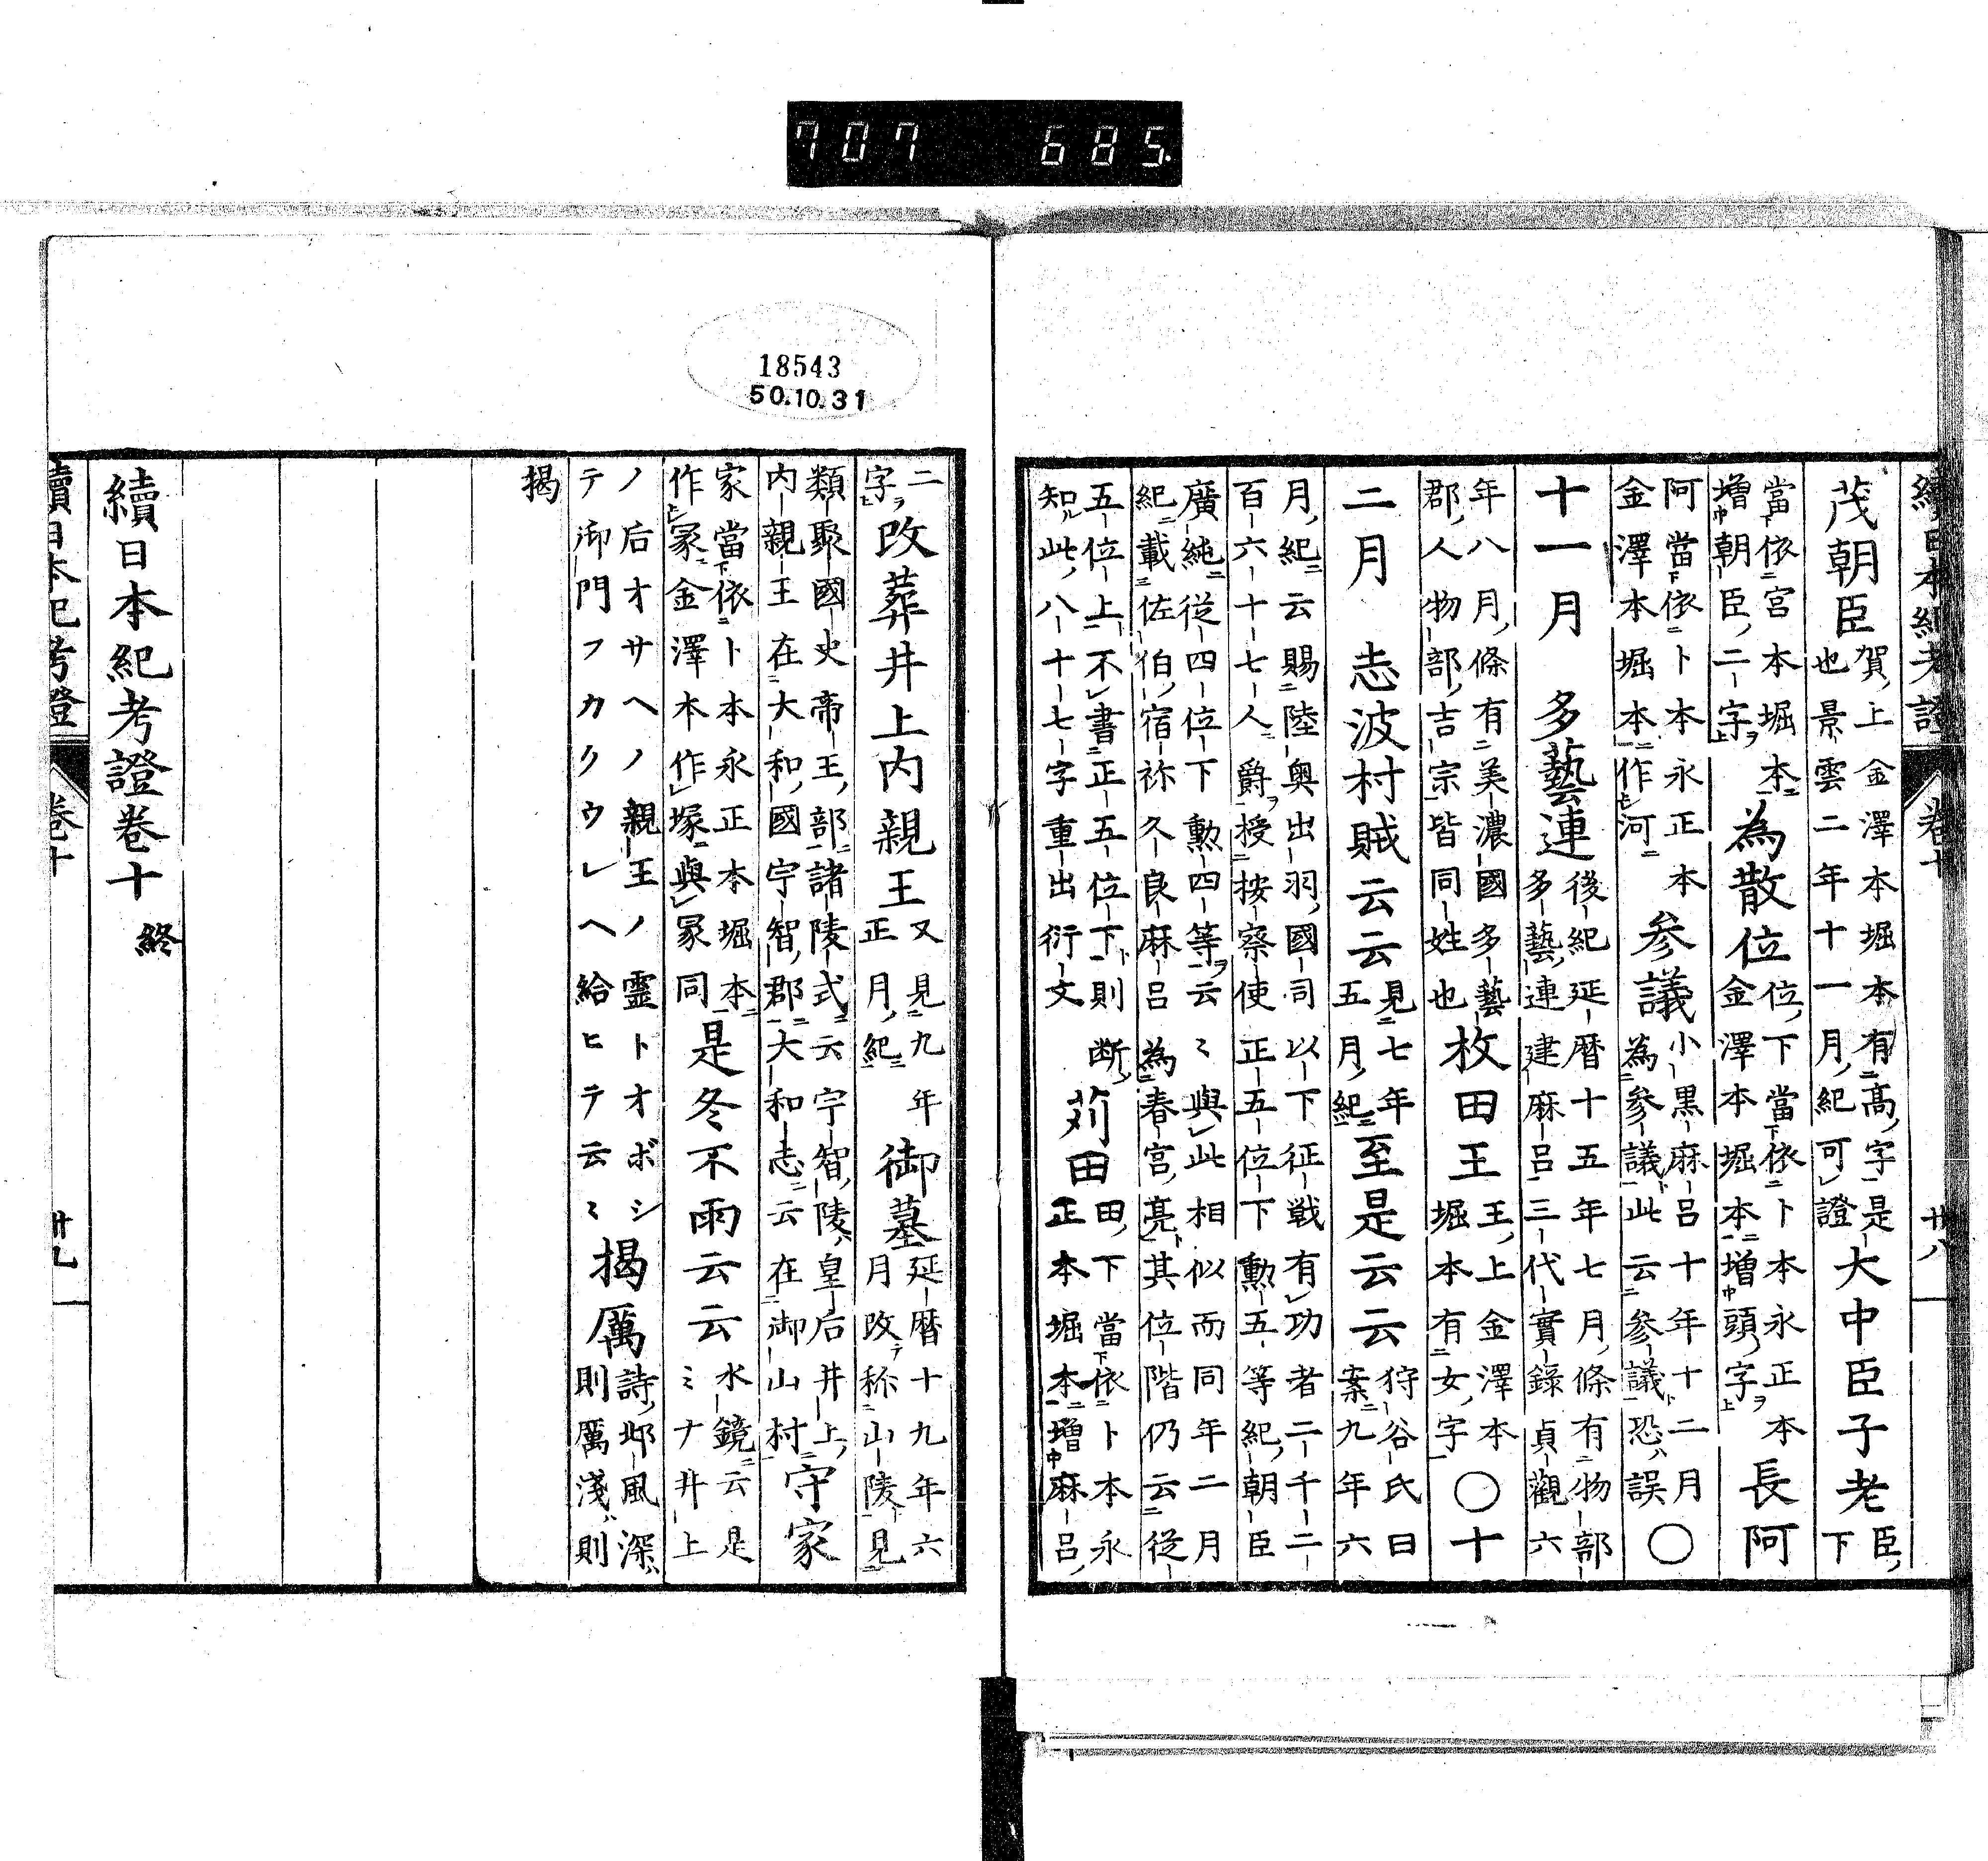 707 685
續日本紀考證 卷十 廿八
茂朝臣 賀上金澤本堀本有高字是也景雲二年十一月紀可證 大中臣子老 臣下
當依宮本堀本增朝臣二字 為散位 位下當依卜本永正本金澤本堀本增頭字 長阿
阿當依卜本永正本金澤本堀本作河 参議 小黒麻呂十年十二月為参議此云参議恐誤 〇
十一月 多藝連 後紀延暦十五年七月條有物部多藝連建麻呂三代實錄貞觀六
年八月條有美濃國多藝郡人物部吉宗皆同姓也 枚田王 王上金澤本堀本有女字 〇十
二月 志波村賊云云 見七年五月紀 至是云云 狩谷氏曰案九年六
月紀云賜陸奥出羽國司以下征戦有功者二千二百六十七人爵授按察使正五位下勳五等紀朝臣
廣純從四位下勳四等云〻與此相似而同年二月紀載佐伯宿祢久良麻呂為春宮亮其位階仍云從
五位上不書正五位下則知此八十七字重出衍文 断 苅田 田下當依卜本永正本堀本增麻呂
二字 改葬井上内親王 又見九年正月紀 御墓 延暦十九年六月改称山陵見
類聚國史帝王部諸陵式云宇智陵皇后井上内親王在大和國宇智郡大和志云在御山村 守家
家當依卜本永正本堀本作冢金澤本作塚與冢同 是冬不雨云云 水鏡云是ミナ井上
ノ后オサヘノ親王ノ霊トオボシテ御門フカクウレヘ給ヒテ云〻 揭厲 詩邶風深則厲淺則
揭
續日本紀考證卷十 終
續日本紀考證 卷十 廿九
18543
50.10.31